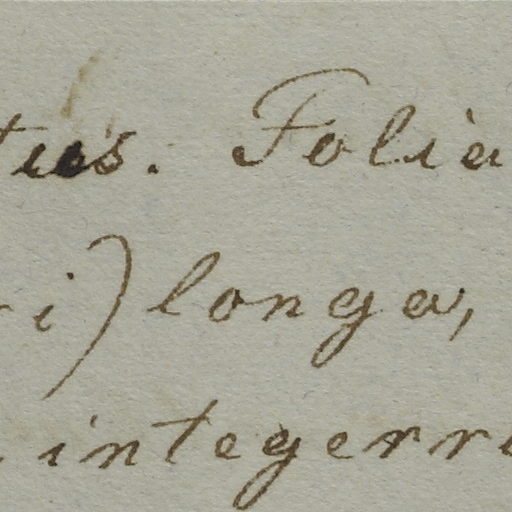 ties. Folia
i) longa,
integerri